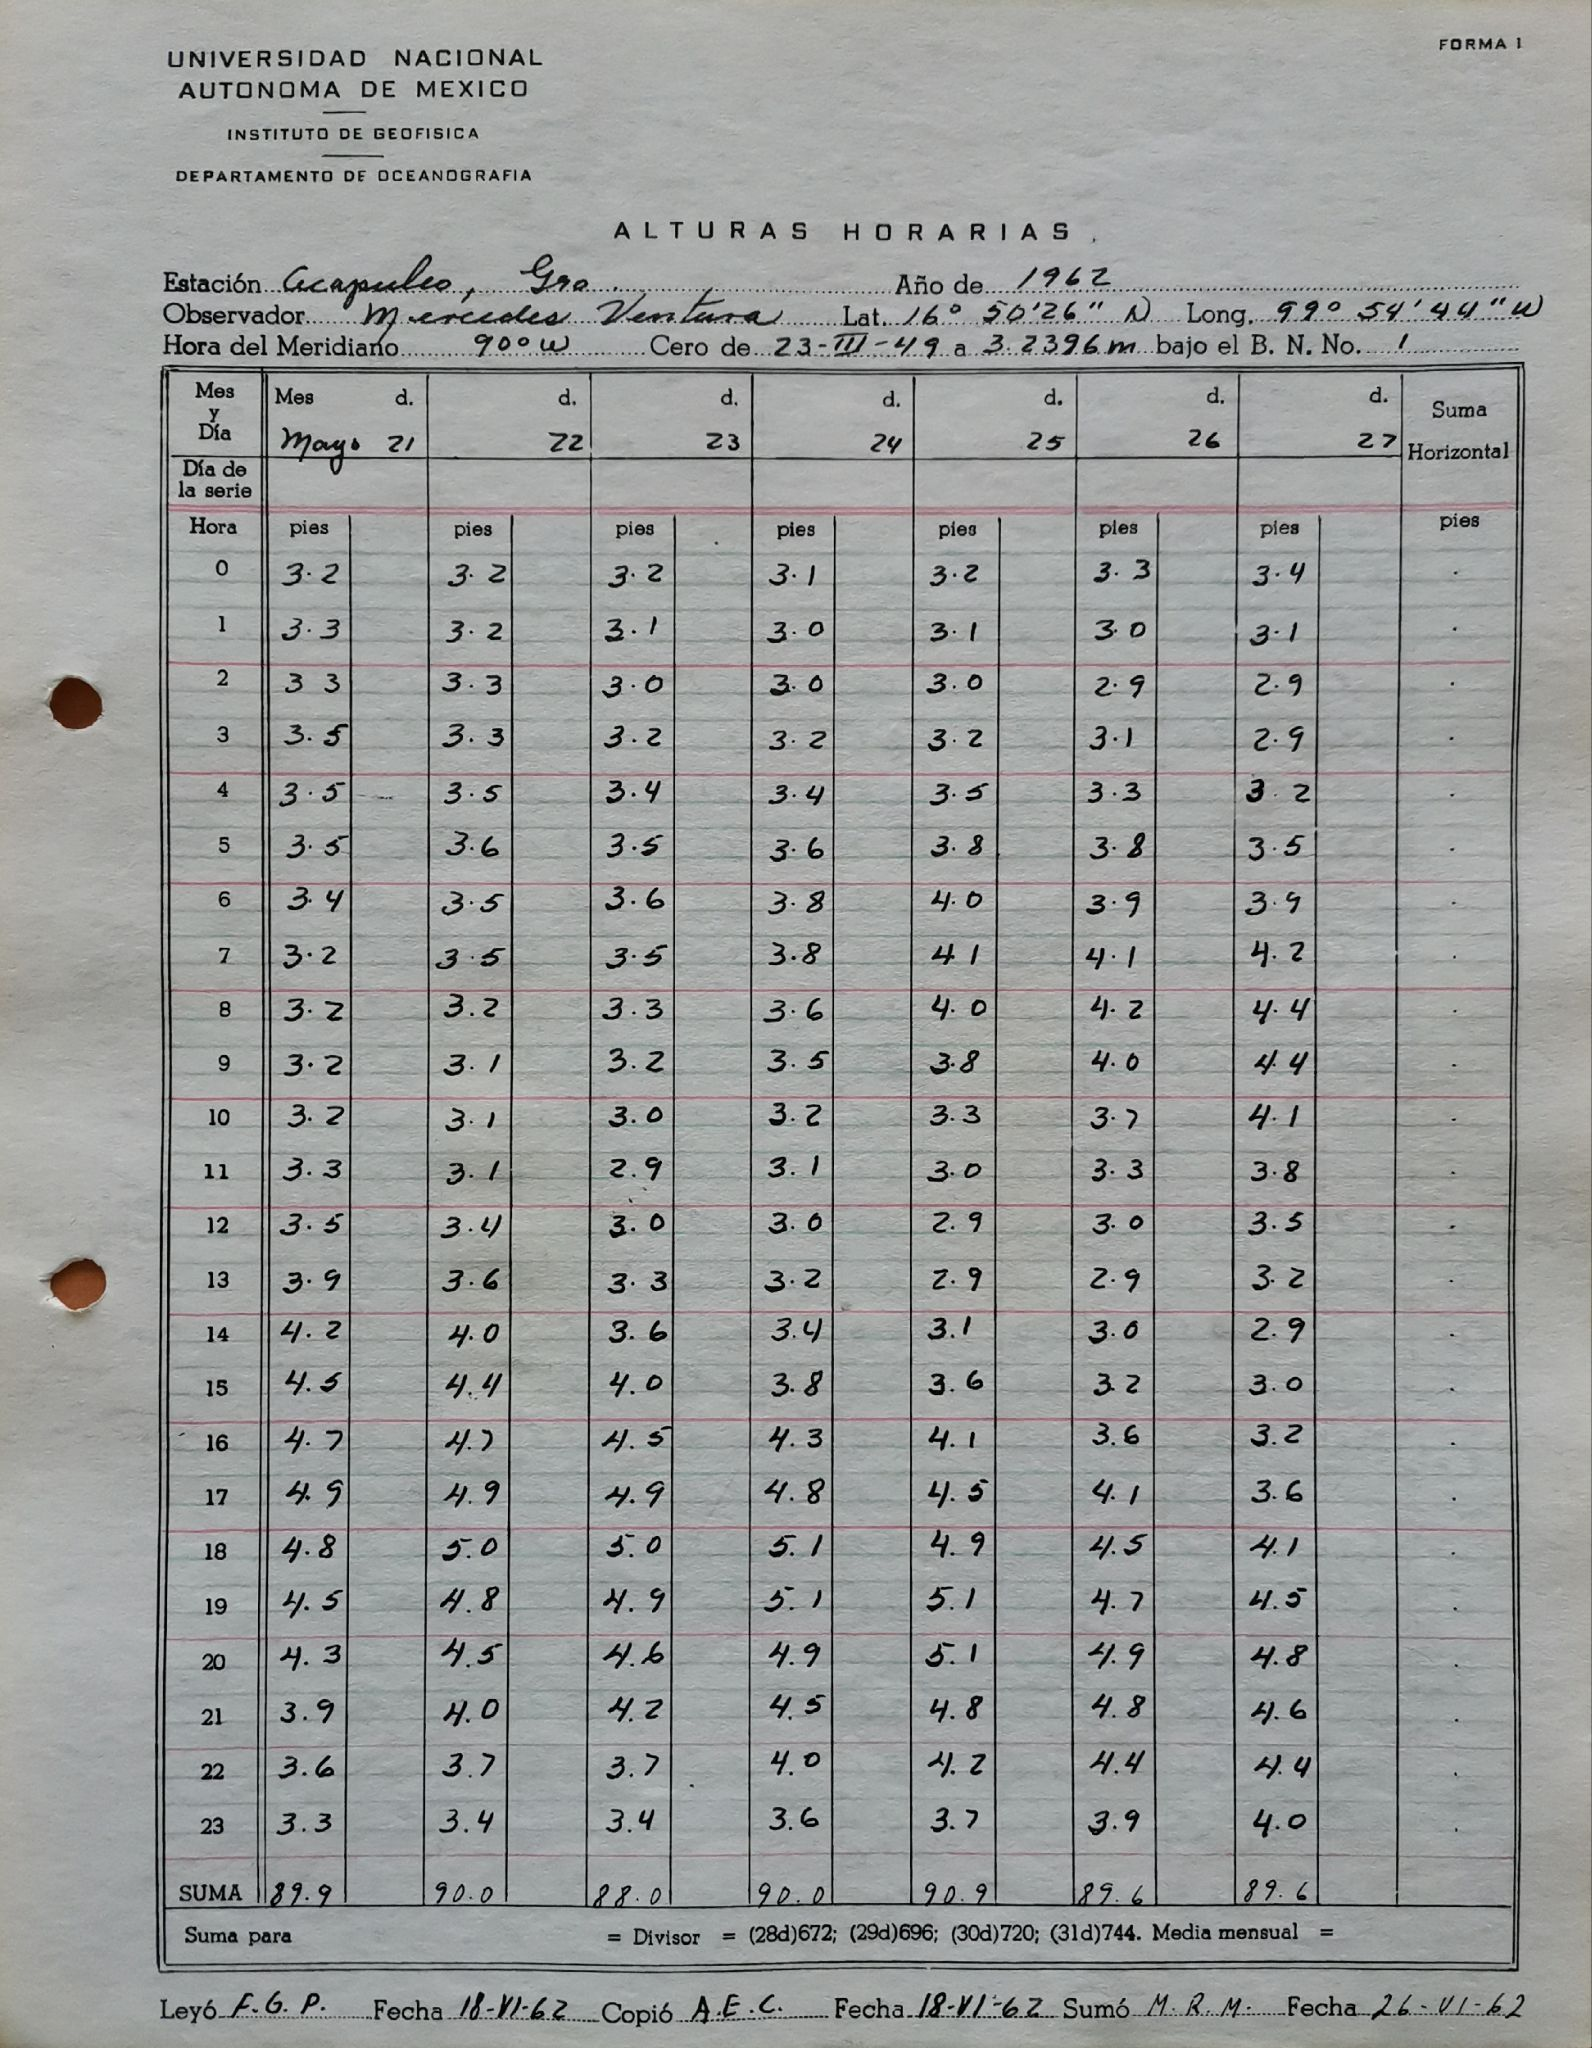 FORMA 1
UNIVERSIDAD NACIONAL
AUTONOMA DE MEXICO
INSTITUTO DE GEOFISICA
DEPARTAMENTO DE OCEANOGRAFIA
ALTURAS HORARIAS
Estación Acapulco, Gro. Año de 1962
Observador Mercedes Ventura Lat. 16° 50'26" N Long. 99° 54' 44" W
Hora del Meridiano 90° W Cero de 23-III-49 a 3.2396 m bajo el B. N. No. 1
Mes y Día Mes d. d. d. d. d. d. d. Suma
Mayo 21 22 23 24 25 26 27 Horizontal
Día de la serie
Hora pies pies pies pies pies pies pies pies
0 3.2 3.2 3.2 3.1 3.2 3.3 3.4
1 3.3 3.2 3.1 3.0 3.1 3.0 3.1
2 3 3 3.3 3.0 3.0 3.0 2.9 2.9
3 3.5 3.3 3.2 3.2 3.2 3.1 2.9
4 3.5 3.5 3.4 3.4 3.5 3.3 3.2
5 3.5 3.6 3.5 3.6 3.8 3.8 3.5
6 3.4 3.5 3.6 3.8 4.0 3.9 3.9
7 3.2 3.5 3.5 3.8 4 1 4.1 4.2
8 3.2 3.2 3.3 3.6 4.0 4.2 4.4
9 3.2 3.1 3.2 3.5 3.8 4.0 4.4
10 3.2 3.1 3.0 3.2 3.3 3.7 4.1
11 3.3 3.1 2.9 3.1 3.0 3.3 3.8
12 3.5 3.4 3.0 3.0 2.9 3.0 3.5
13 3.9 3.6 3.3 3.2 2.9 2.9 3.2
14 4.2 4.0 3.6 3.4 3.1 3.0 2.9
15 4.5 4.4 4.0 3.8 3.6 3.2 3.0
16 4.7 4.7 4.5 4.3 4.1 3.6 3.2
17 4.9 4.9 4.9 4.8 4.5 4.1 3.6
18 4.8 5.0 5.0 5.1 4.9 4.5 4.1
19 4.5 4.8 4.9 5.1 5.1 4.7 4.5
20 4.3 4.5 4.6 4.9 5.1 4.9 4.8
21 3.9 4.0 4.2 4.5 4.8 4.8 4.6
22 3.6 3.7 3.7 4.0 4.2 4.4 4.4
23 3.3 3.4 3.4 3.6 3.7 3.9 4.0
SUMA 89.9 90.0 88.0 90.0 90.9 89.6 89.6
Suma para = Divisor = (28d)672; (29d)696; (30d)720; (31d)744. Media mensual =
Leyó F.G.P. Fecha 18-VI-62 Copió A.E.C. Fecha 18-VI-62 Sumó M.R.M. Fecha 26-VI-62